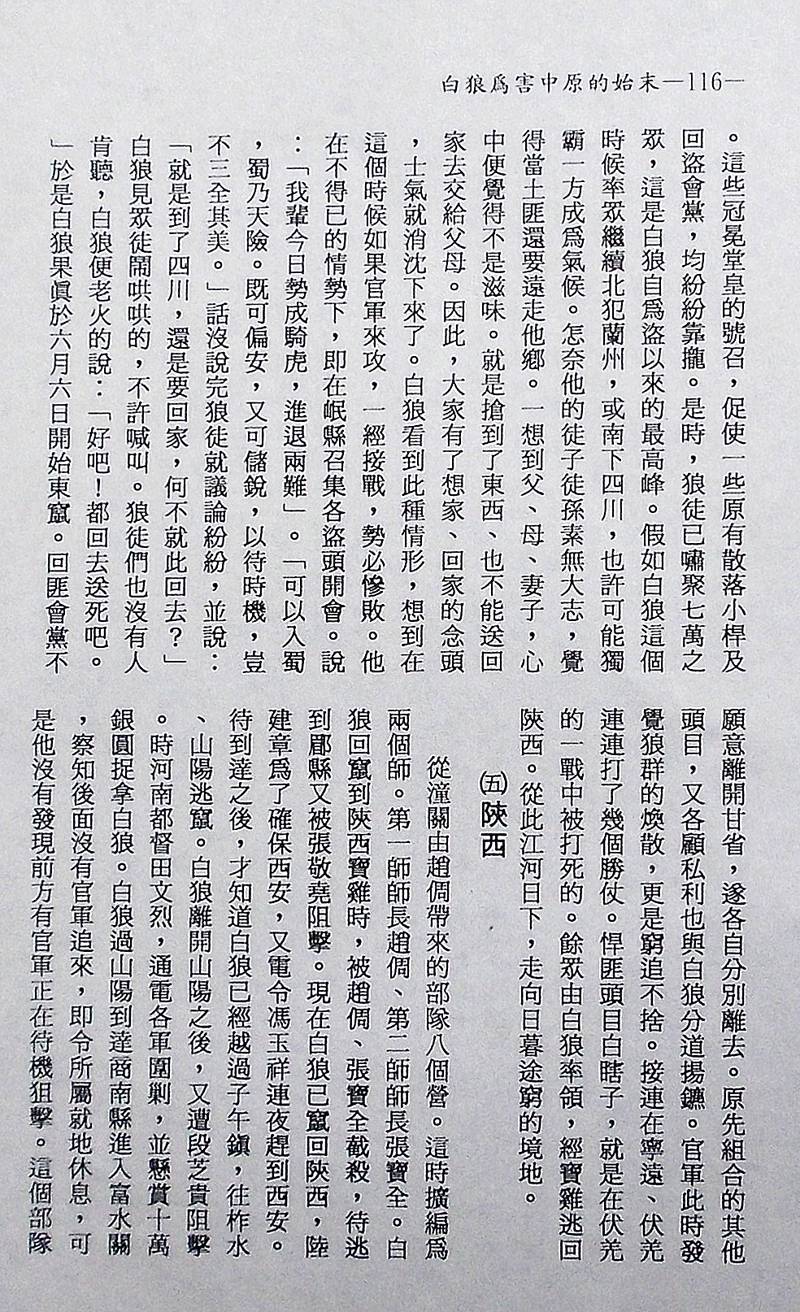 白狼爲害中原的始末—116—
。這些冠冕堂皇的號召，促使一些原有散落小桿及
回盜會黨，均紛紛靠攏。是時，狼徒已嘯聚七萬之
眾，這是白狼自爲盜以來的最高峰。假如白狼這個
時候率眾繼續北犯蘭州，或南下四川，也許可能獨
霸一方成爲氣候。怎奈他的徒子徒孫素無大志，覺
得當土匪還要遠走他鄉。一想到父、母、妻子，心
中便覺得不是滋味。就是搶到了東西、也不能送回
家去交給父母。因此，大家有了想家、回家的念頭
，士氣就消沈下來了。白狼看到此種情形，想到在
這個時候如果官軍來攻，一經接戰，勢必慘敗。他
在不得已的情勢下，即在岷縣召集各盜頭開會。說
：「我輩今日勢成騎虎，進退兩難」。「可以入蜀
，蜀乃天險。既可偏安，又可儲銳，以待時機，豈
不三全其美。」話沒說完狼徒就議論紛紛，並說：
「就是到了四川，還是要回家，何不就此回去？」
白狼見眾徒鬧哄哄的，不許喊叫。狼徒們也沒有人
肯聽，白狼便老火的說：「好吧！都回去送死吧。
」於是白狼果眞於六月六日開始東竄。回匪會黨不
願意離開甘省，遂各自分別離去。原先組合的其他
頭目，又各顧私利也與白狼分道揚鑣。官軍此時發
覺狼群的煥散，更是窮追不捨。接連在寧遠、伏羌
連連打了幾個勝仗。悍匪頭目白瞎子，就是在伏羌
的一戰中被打死的。餘眾由白狼率領，經寶雞逃回
陝西。從此江河日下，走向日暮途窮的境地。
㈤陝西
從潼關由趙倜帶來的部隊八個營。這時擴編爲
兩個師。第一師師長趙倜、第二師師長張寶全。白
狼回竄到陝西寶雞時，被趙倜、張寶全截殺，待逃
到郿縣又被張敬堯阻擊。現在白狼已竄回陝西，陸
建章爲了確保西安，又電令馮玉祥連夜趕到西安。
待到達之後，才知道白狼已經越過子午鎭，往柞水
、山陽逃竄。白狼離開山陽之後，又遭段芝貴阻擊
。時河南都督田文烈，通電各軍圍剿，並懸賞十萬
銀圓捉拿白狼。白狼過山陽到達商南縣進入富水關
，察知後面沒有官軍追來，即令所屬就地休息，可
是他沒有發現前方有官軍正在待機狙擊。這個部隊